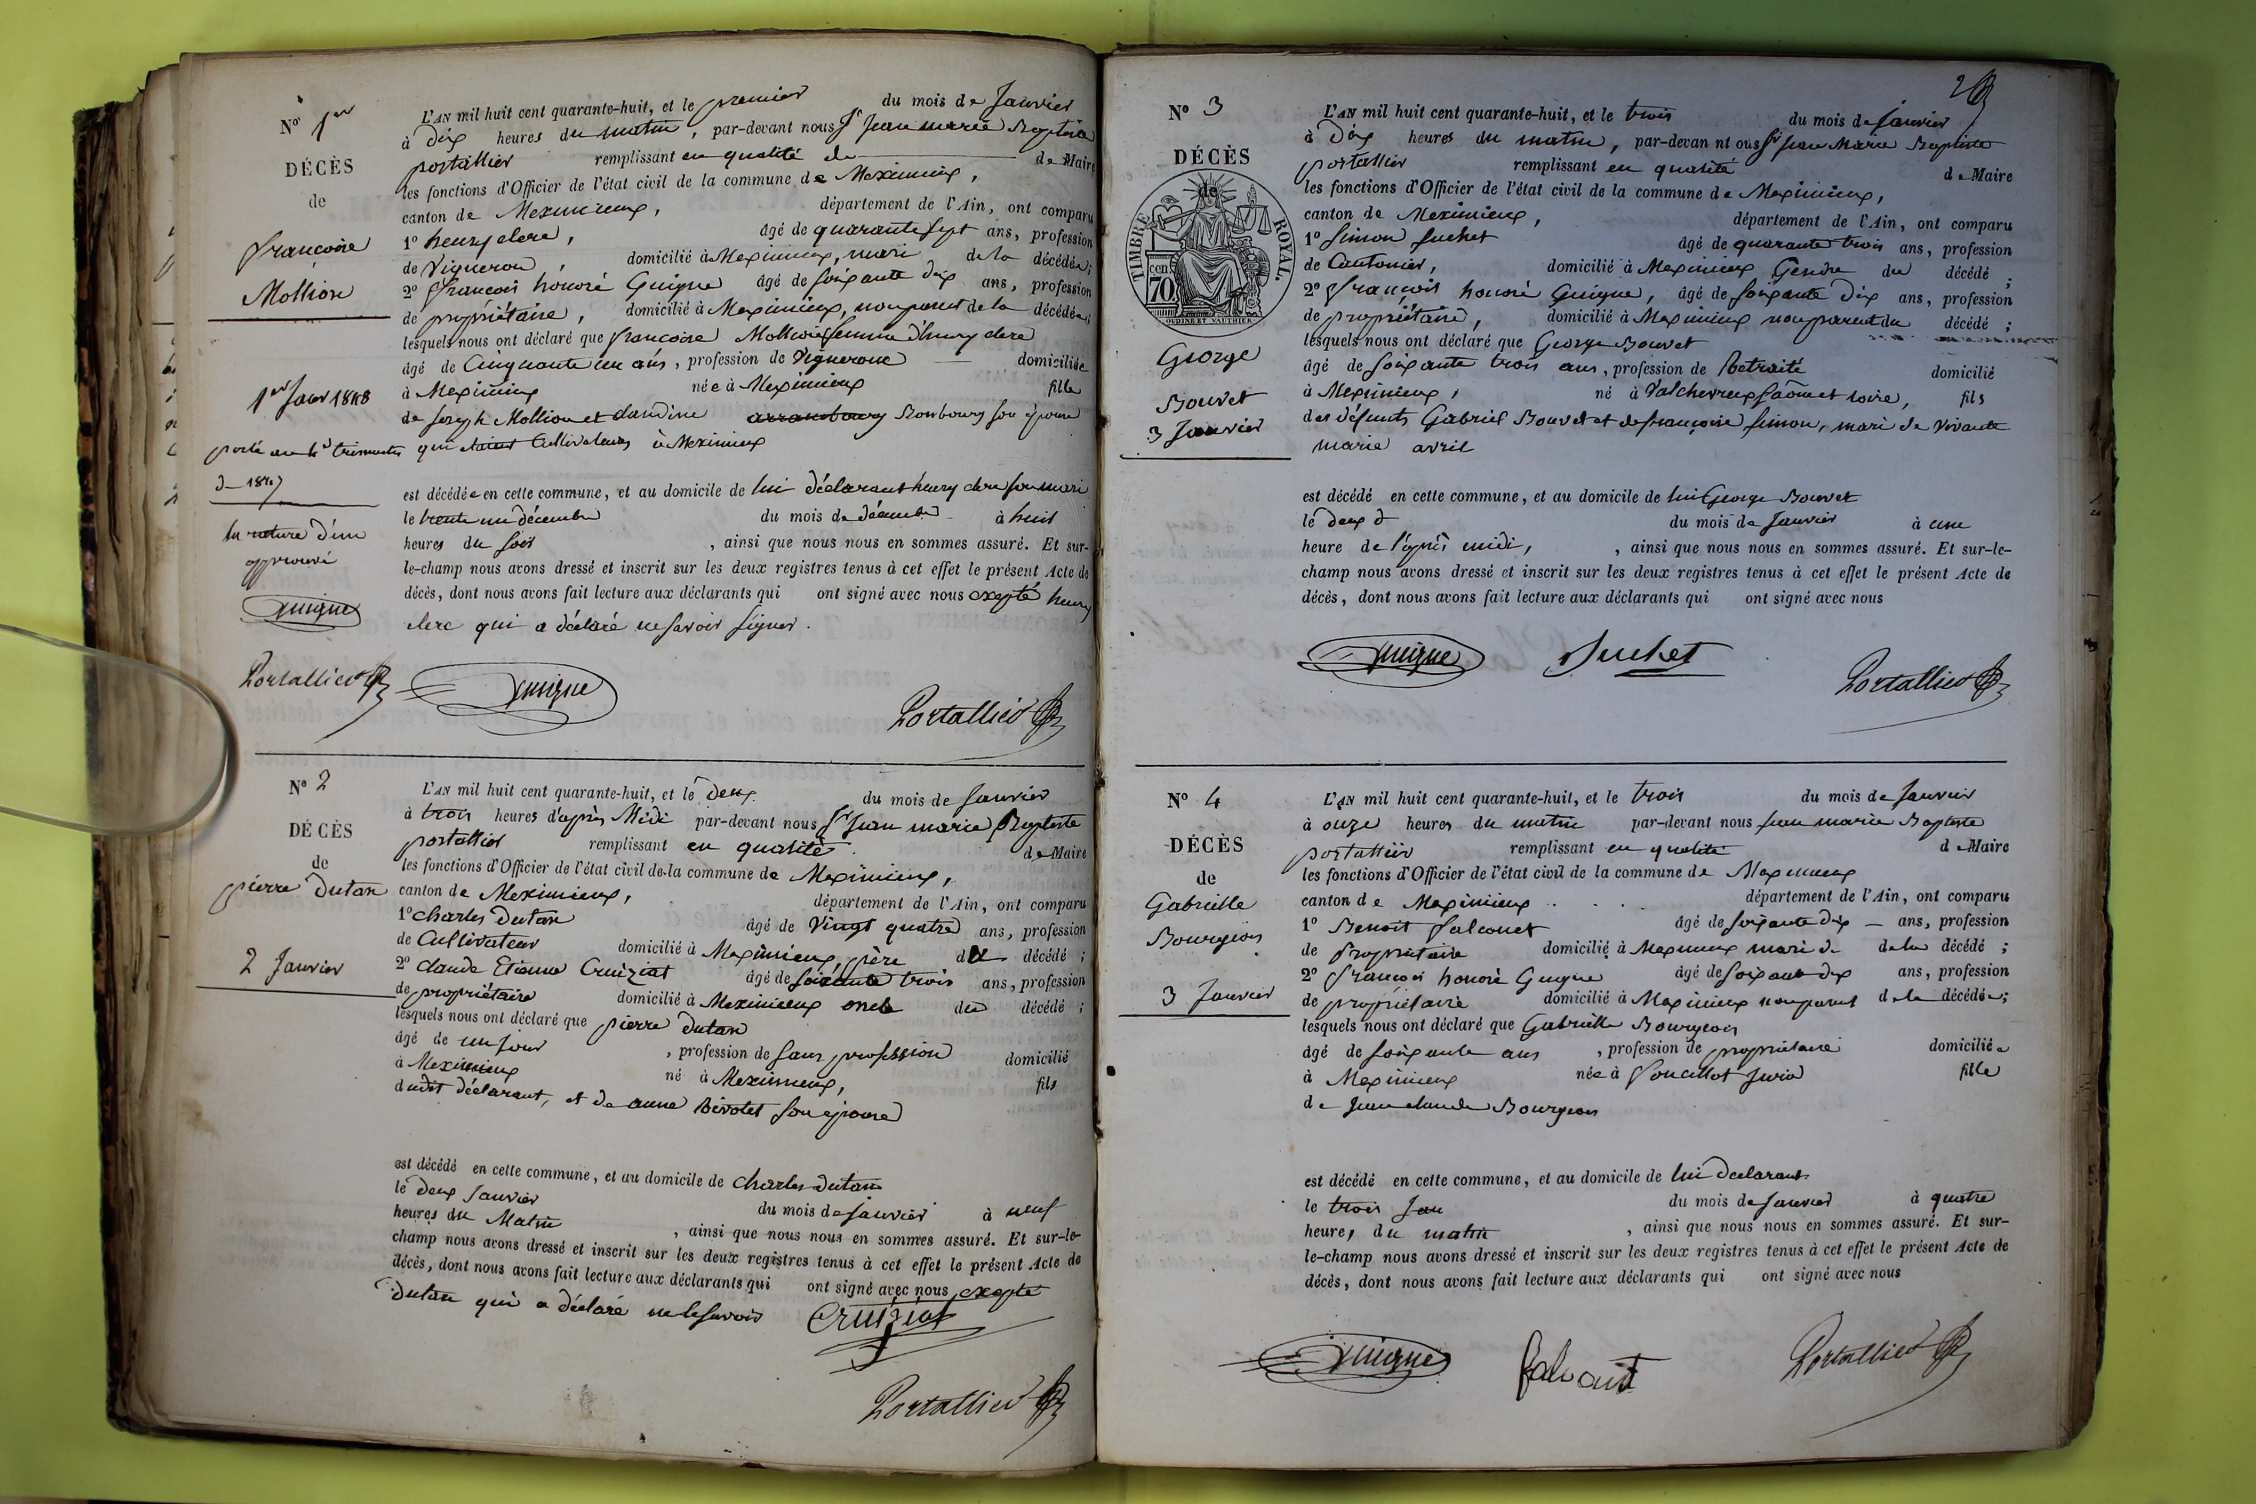 N° 1er
DÉCÈS
de
françoise
Mollion
1er Janv 1848
porté au 4e trimestre
de 1847
la rature d'un
approuvé
Guigue
Portallier
L'AN mil huit cent quarante-huit, et le premier du mois de Janvier
à dix heures du matin, par-devant nous Sr Jean marie Baptiste
portallier remplissant en qualité de de Maire
les fonctions d'Officier de l'état civil de la commune de Meximieux,
canton de Meximieux, département de l'Ain, ont comparu
1° henry clere, âgé de quarante sept ans, profession
de Vigneron, domicilié à Meximieux, mari de la décédée;
2° françois honoré Guigue âgé de soixante dix ans, profession
de propriétaire, domicilié à Meximieux, non parent de la décédée;
lesquels nous ont déclaré que françoise Mollion femme d'henry clere
âgé de Cinquante un ans, profession de Vigneronne domiciliée
à Meximieux née à Meximieux fille
de Joseph Mollion et claudine Bonbourg son épouse
qui étaient Cultivateurs à Meximieux
est décédée en cette commune, et au domicile de lui déclarant henry clere son mari
le trente un décembre du mois de décembre à huit
heures du soir, ainsi que nous nous en sommes assuré. Et sur-
le-champ nous avons dressé et inscrit sur les deux registres tenus à cet effet le présent Acte de
décès, dont nous avons fait lecture aux déclarants qui ont signé avec nous excepté henry
clere qui a déclaré ne savoir signer.
Guigue Portallier
N° 2
DÉCÈS
de
pierre Dutan
2 Janvier
L'AN mil huit cent quarante-huit, et le deux du mois de Janvier
à trois heures d'après Midi par-devant nous Sr Jean marie Baptiste
portallier remplissant en qualité de Maire
les fonctions d'Officier de l'état civil de la commune de Meximieux,
canton de Meximieux, département de l'Ain, ont comparu
1° charles Dutan âgé de Vingt quatre ans, profession
de Cultivateur domicilié à Meximieux, père du décédé;
2° claude Etienne Cruiziat âgé de soixante trois ans, profession
de propriétaire domicilié à Meximieux oncle du décédé;
lesquels nous ont déclaré que pierre Dutan
âgé de un jour, profession de sans profession domicilié
à Meximieux né à Meximieux, fils
dudit déclarant, et de anne son épouse
est décédé en cette commune, et au domicile de charles dutan
le deux Janvier du mois de Janvier à neuf
heures du Matin, ainsi que nous nous en sommes assuré. Et sur-le-
champ nous avons dressé et inscrit sur les deux registres tenus à cet effet le présent Acte de
décès, dont nous avons fait lecture aux déclarants qui ont signé avec nous excepté
Dutan qui a déclaré ne le savoir Cruiziat
Portallier
2
N° 3
DÉCÈS
de
TIMBRE ROYAL.
70 cen
OUDINÉ ET VAUTHIER
George
Bouvet
3 Janvier
L'AN mil huit cent quarante-huit, et le trois du mois de Janvier
à dix heures du matin, par-devan nt ous Sr Jean Marie Baptiste
portallier remplissant en qualité de Maire
les fonctions d'Officier de l'état civil de la commune de Meximieux,
canton de Meximieux, département de l'Ain, ont comparu
1° Simon Suchet âgé de quarante trois ans, profession
de Cantonier, domicilié à Meximieux Gendre du décédé;
2° François honoré Guigue, âgé de soixante dix ans, profession
de propriétaire, domicilié à Meximieux non parent du décédé;
lesquels nous ont déclaré que George Bouvet
âgé de soixante trois ans, profession de Retraité domicilié
à Meximieux, né à Palchevreux saône et loire, fils
des défunts Gabriel Bouvet et de françoise simon, mari de Vivante
marie avril
est décédé en cette commune, et au domicile de lui George Bouvet
le deux d du mois de Janvier à une
heure de l'après midi, ainsi que nous nous en sommes assuré. Et sur-le-
champ nous avons dressé et inscrit sur les deux registres tenus à cet effet le présent Acte de
décès, dont nous avons fait lecture aux déclarants qui ont signé avec nous
Guigue Suchet Portallier
N° 4
DÉCÈS
de
Gabrielle
Bourgeois
3 Janvier
L'AN mil huit cent quarante-huit, et le trois du mois de Janvier
à onze heures du matin par-devant nous jean marie Baptiste
portallier remplissant en qualité de Maire
les fonctions d'Officier de l'état civil de la commune de Meximieux
canton de Meximieux département de l'Ain, ont comparu
1° Benoit falconet âgé de soixante dix ans, profession
de Propriétaire domicilié à Meximieux mari de de la décédé;
2° françois honoré Guigue âgé de soixante dix ans, profession
de propriétaire domicilié à Meximieux non parent de la décédée;
lesquels nous ont déclaré que Gabrielle Bourgeois
âgé de soixante ans, profession de propriétaire domiciliée
à Meximieux née à Jura fille
de Jean claude Bourgeois
est décédé en cette commune, et au domicile de lui declarant
le trois Jan du mois de Janvier à quatre
heures du matin, ainsi que nous nous en sommes assuré. Et sur-
le-champ nous avons dressé et inscrit sur les deux registres tenus à cet effet le présent Acte de
décès, dont nous avons fait lecture aux déclarants qui ont signé avec nous
Guigue Portallier